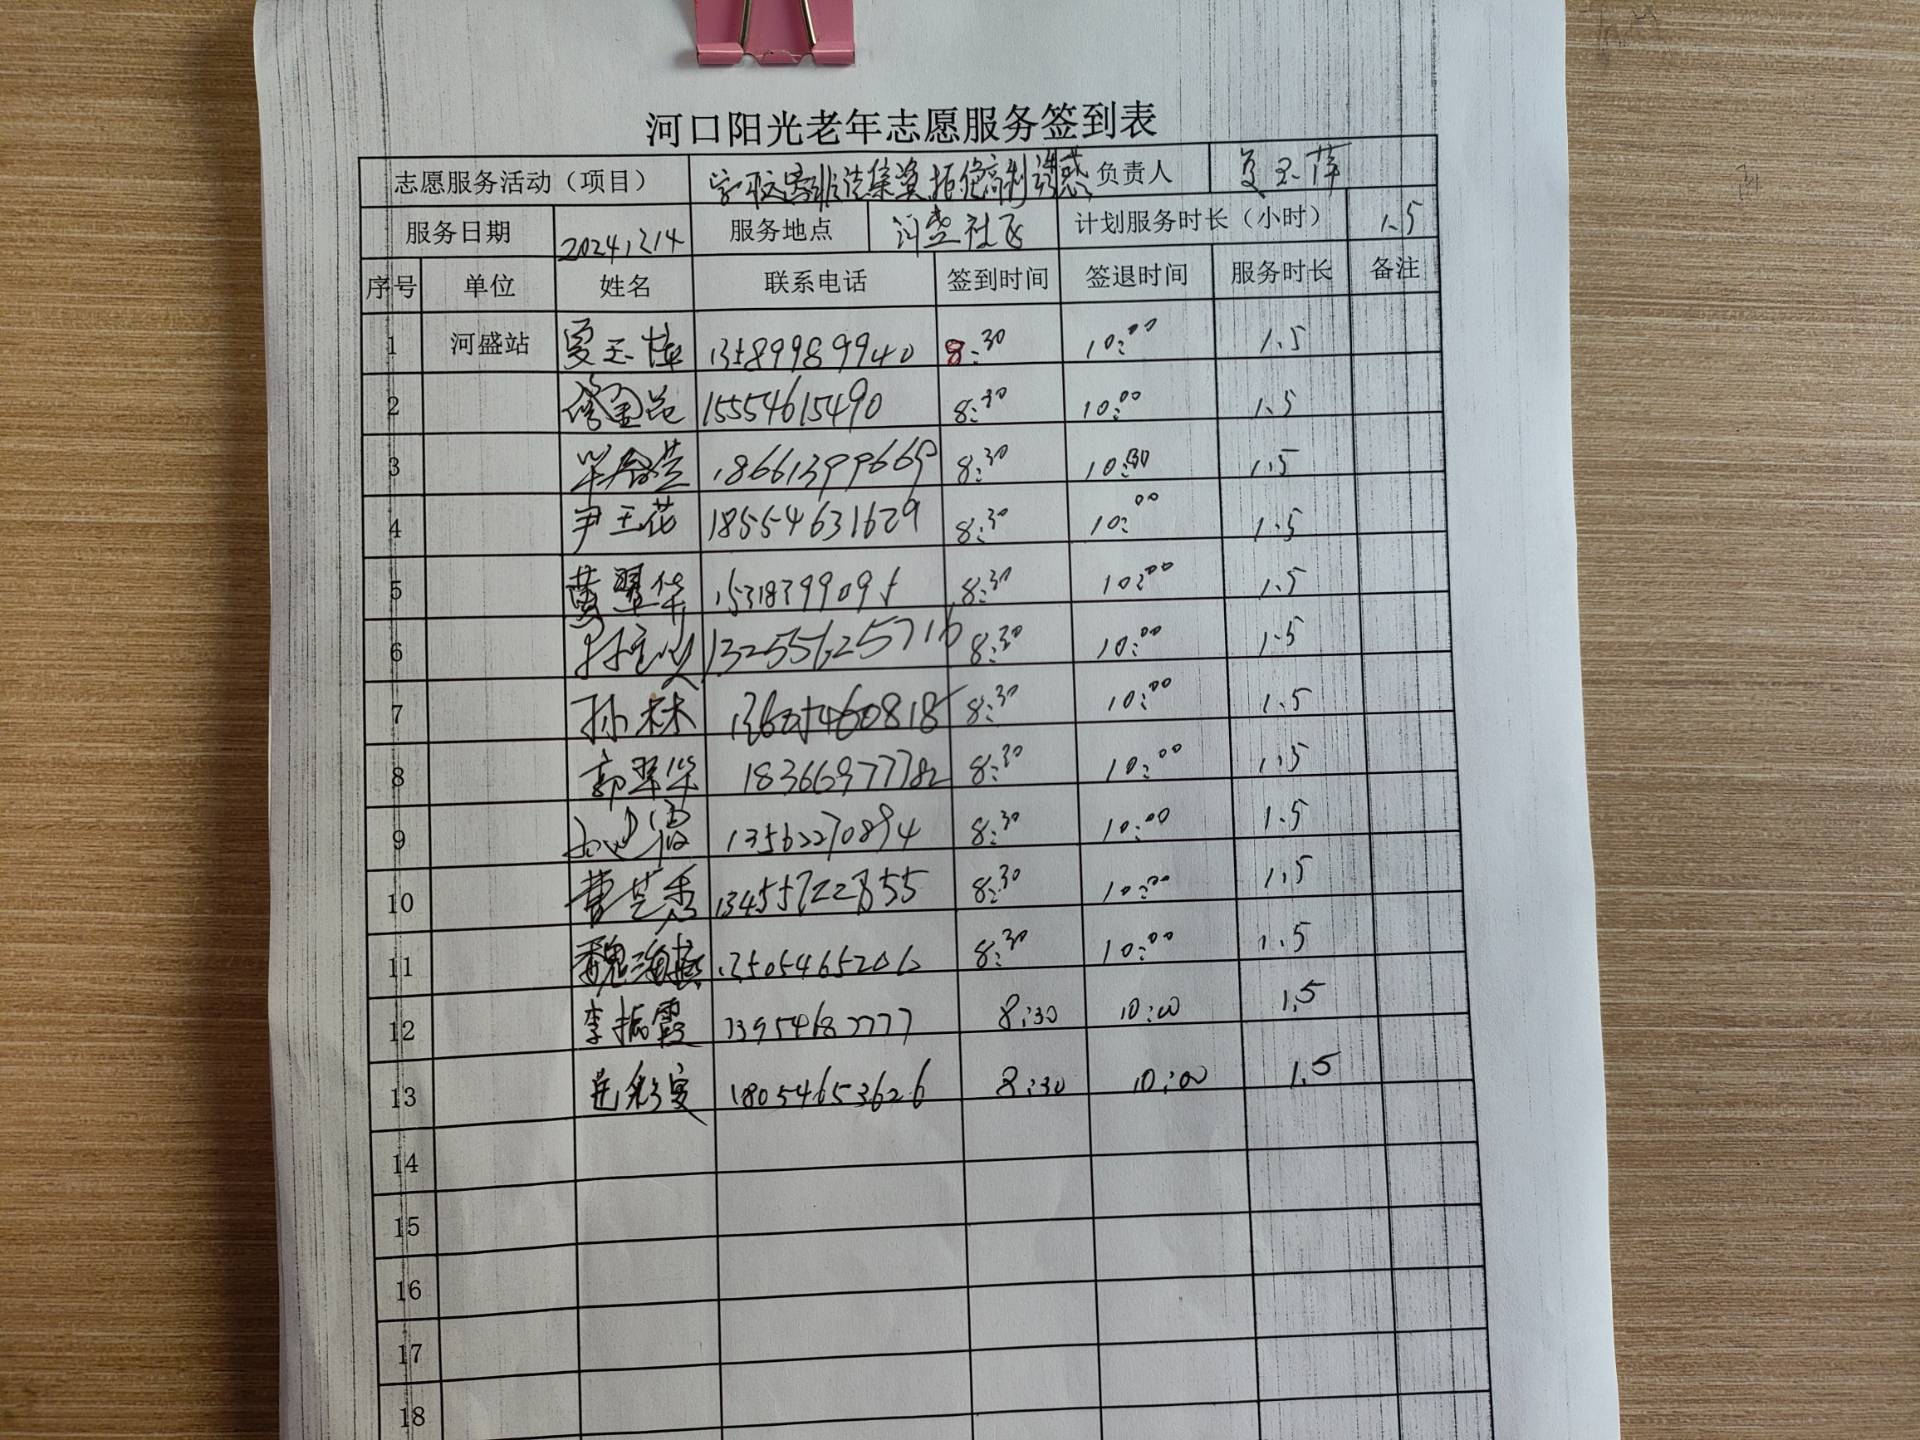 河口阳光老年志愿服务签到表
志愿服务活动（项目） 非法集资 拒绝高利诱惑 负责人 夏玉萍
服务日期 服务地点 河盛社区 计划服务时长（小时） 1.5
序号 单位 姓名 联系电话 签到时间 签退时间 服务时长 备注
1 河盛站 夏玉萍 13589989940 8:30 10:00 1.5
2 15554615490 8:30 10:00 1.5
3 18661399669 8:30 1.5
4 尹玉花 18554631629 8:30 10:00 1.5
5 黄翠华 15318399095 8:30 10:00 1.5
6 8:30 10:00 1.5
7 孙林 13605460818 8:30 10:00 1.5
8 郭翠华 18366977782 8:30 10:00 1.5
9 13562270894 8:30 10:00 1.5
10 曹芝秀 8:30 10:00 1.5
11 魏海燕 13505465206 8:30 10:00 1.5
12 李振霞 13954682777 8:30 10:00 1.5
13 18054653626 8:30 10:00 1.5
14
15
16
17
18